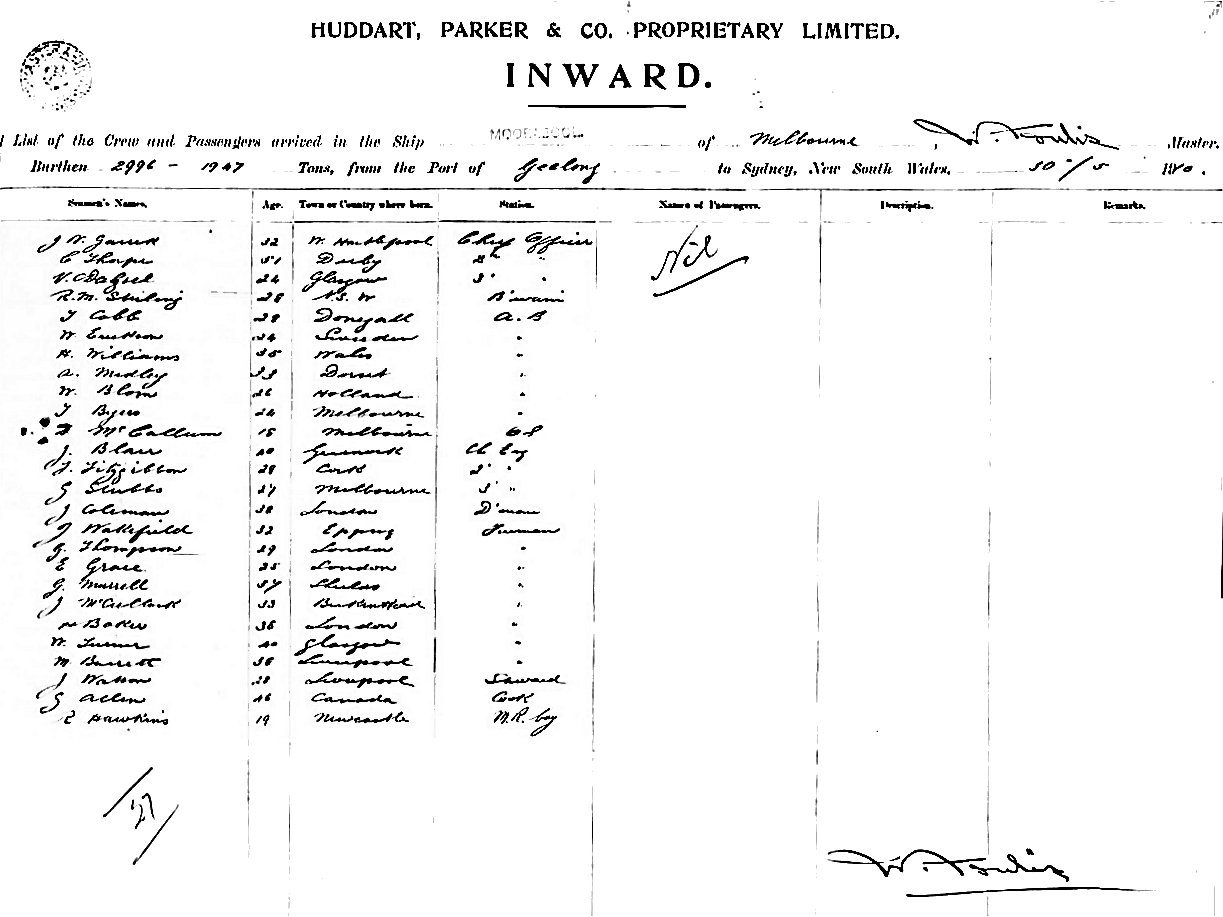 HUDDART, PARKER & CO. PROPRIETARY LIMITED.
INWARD.
List of the Crew and Passengers arrived in the Ship of Melbourne, W. Foulis Master.
Burthen 2996 - 1947 Tons, from the Port of Geelong to Sydney, New South Wales, 30/5
Seamen's Names. Age. Town or Country where born. Station. Names of Passengers. Description. Remarks.
32 W. Hartlepool Chief Officer Nil
C Thorpe 51 Derby 2
24 Glasgow 3 "
R.M. Stirling 28 N.S.W B'swain
T Cobb 28 Donegall A.B
W 34 Sweden "
H. Williams 35 Wales "
A. Medley 33 Dorset "
W. Blom 26 Holland "
T Byers 24 Melbourne "
McCallum 18 Melbourne OS
J. Blair 40 Greenock Ch Eng
T. Fitzgibbon 28 Cork 2 "
G Stubbs 27 Melbourne 3 "
J Coleman 38 London D'man
J Wakefield 32 Epping Fireman
G. Thompson 29 London "
E Grace 35 London "
G. Murrell 37 Shields "
J McCullock 33 Birkenhead "
Baker 36 London "
W. Turner 40 Glasgow "
M. Barrett 38 Liverpool "
J Watson 28 Liverpool S'eward
G Allen 46 Canada Cook
E Hawkins 19 Newcastle M.R. boy
27
W. Foulis